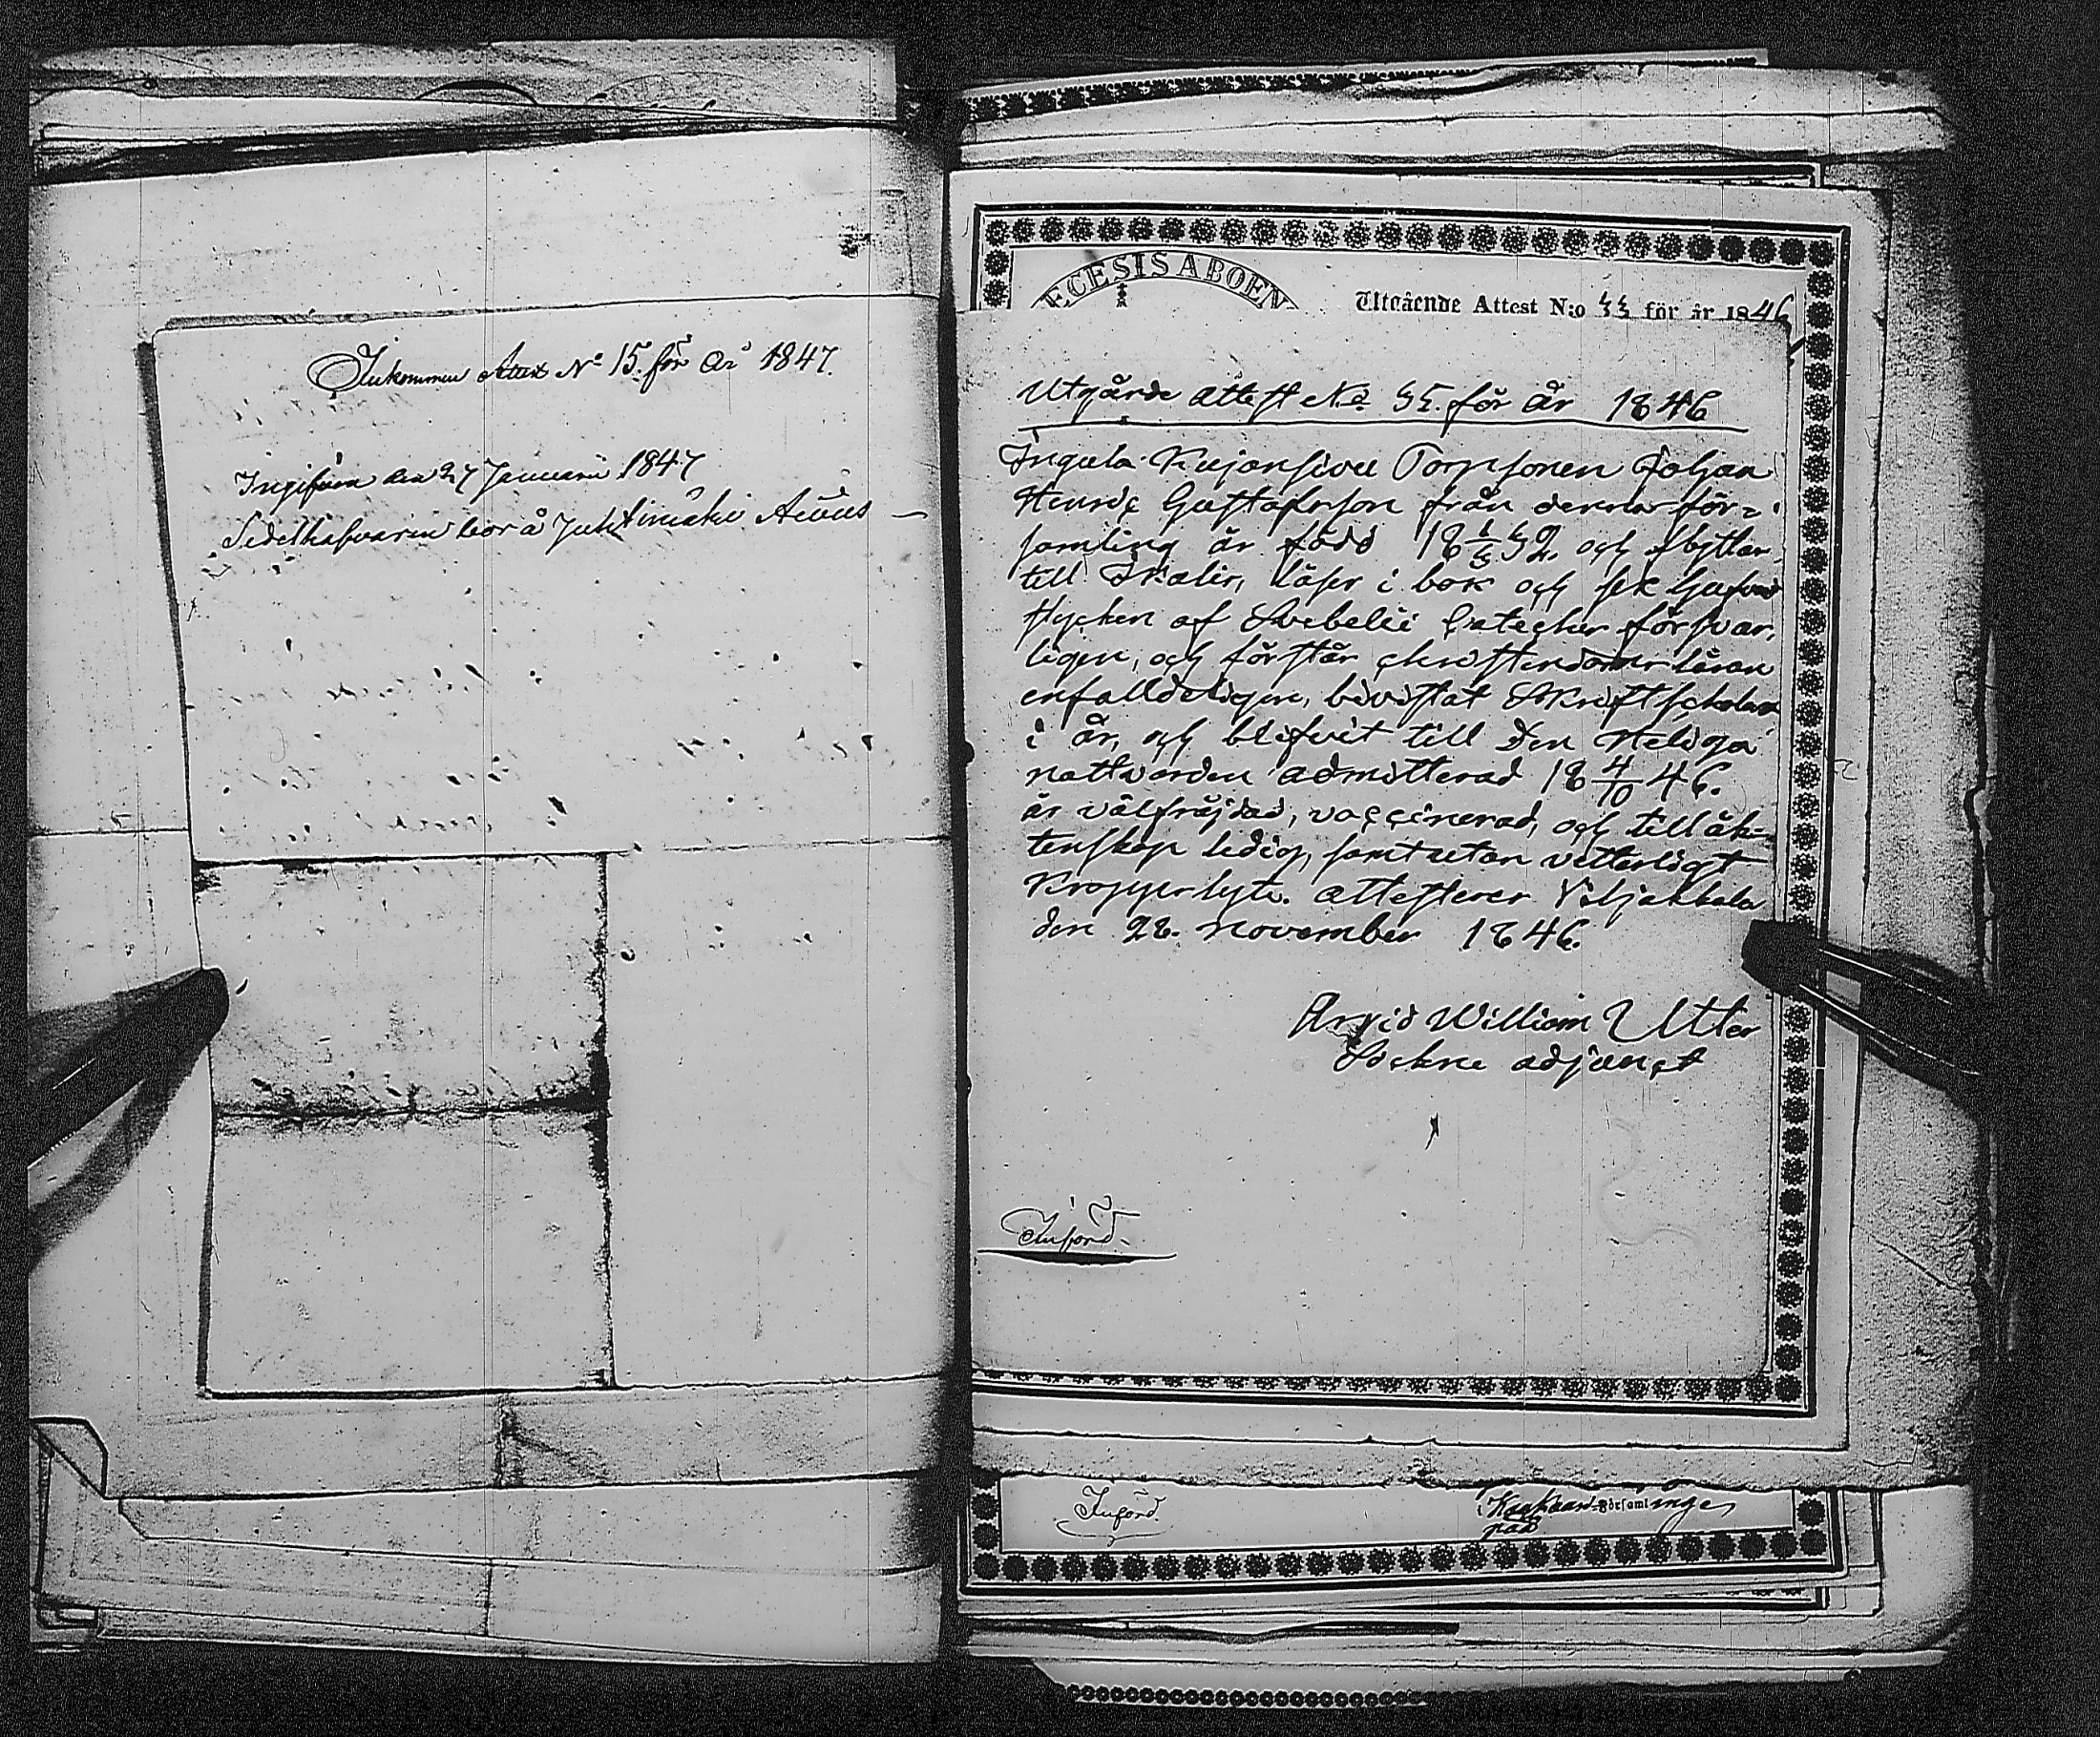 Inkommen Attest No 15. för år 1847.
Ingifven den 27 Januarii 1847
Sedelhafvaren bor å Juhtimäki Auvus
ECESIS ABOEN
Utgående Attest N:o 33 för år 1846
Utgårde attest No 35. för år 1846
Ingula Kujansivu Torpsonen Johan
Henric Gustafsson från denna för=
samling är född 18 32. och flyttar
till Ikalis, läser i bok och sex hufvud
stycken af Svebelii Cateches försvar.
ligen, och förstår christendoms läran
enfalldeligen, bivistat Skriftscholan
i år, och blifvit till Den Heliga
nattvarden admitterad 18 4/10 46.
är välfräjdad, vaccinerad, och till äk=
tenskap ledig, samt utan vetterligt
Kroppslyte. attesterer Viljakkala
den 28. november 1846.
Arvid William Utter
Sockne adjunct
Införd.
Införd
i Kyrkoförsamlinge